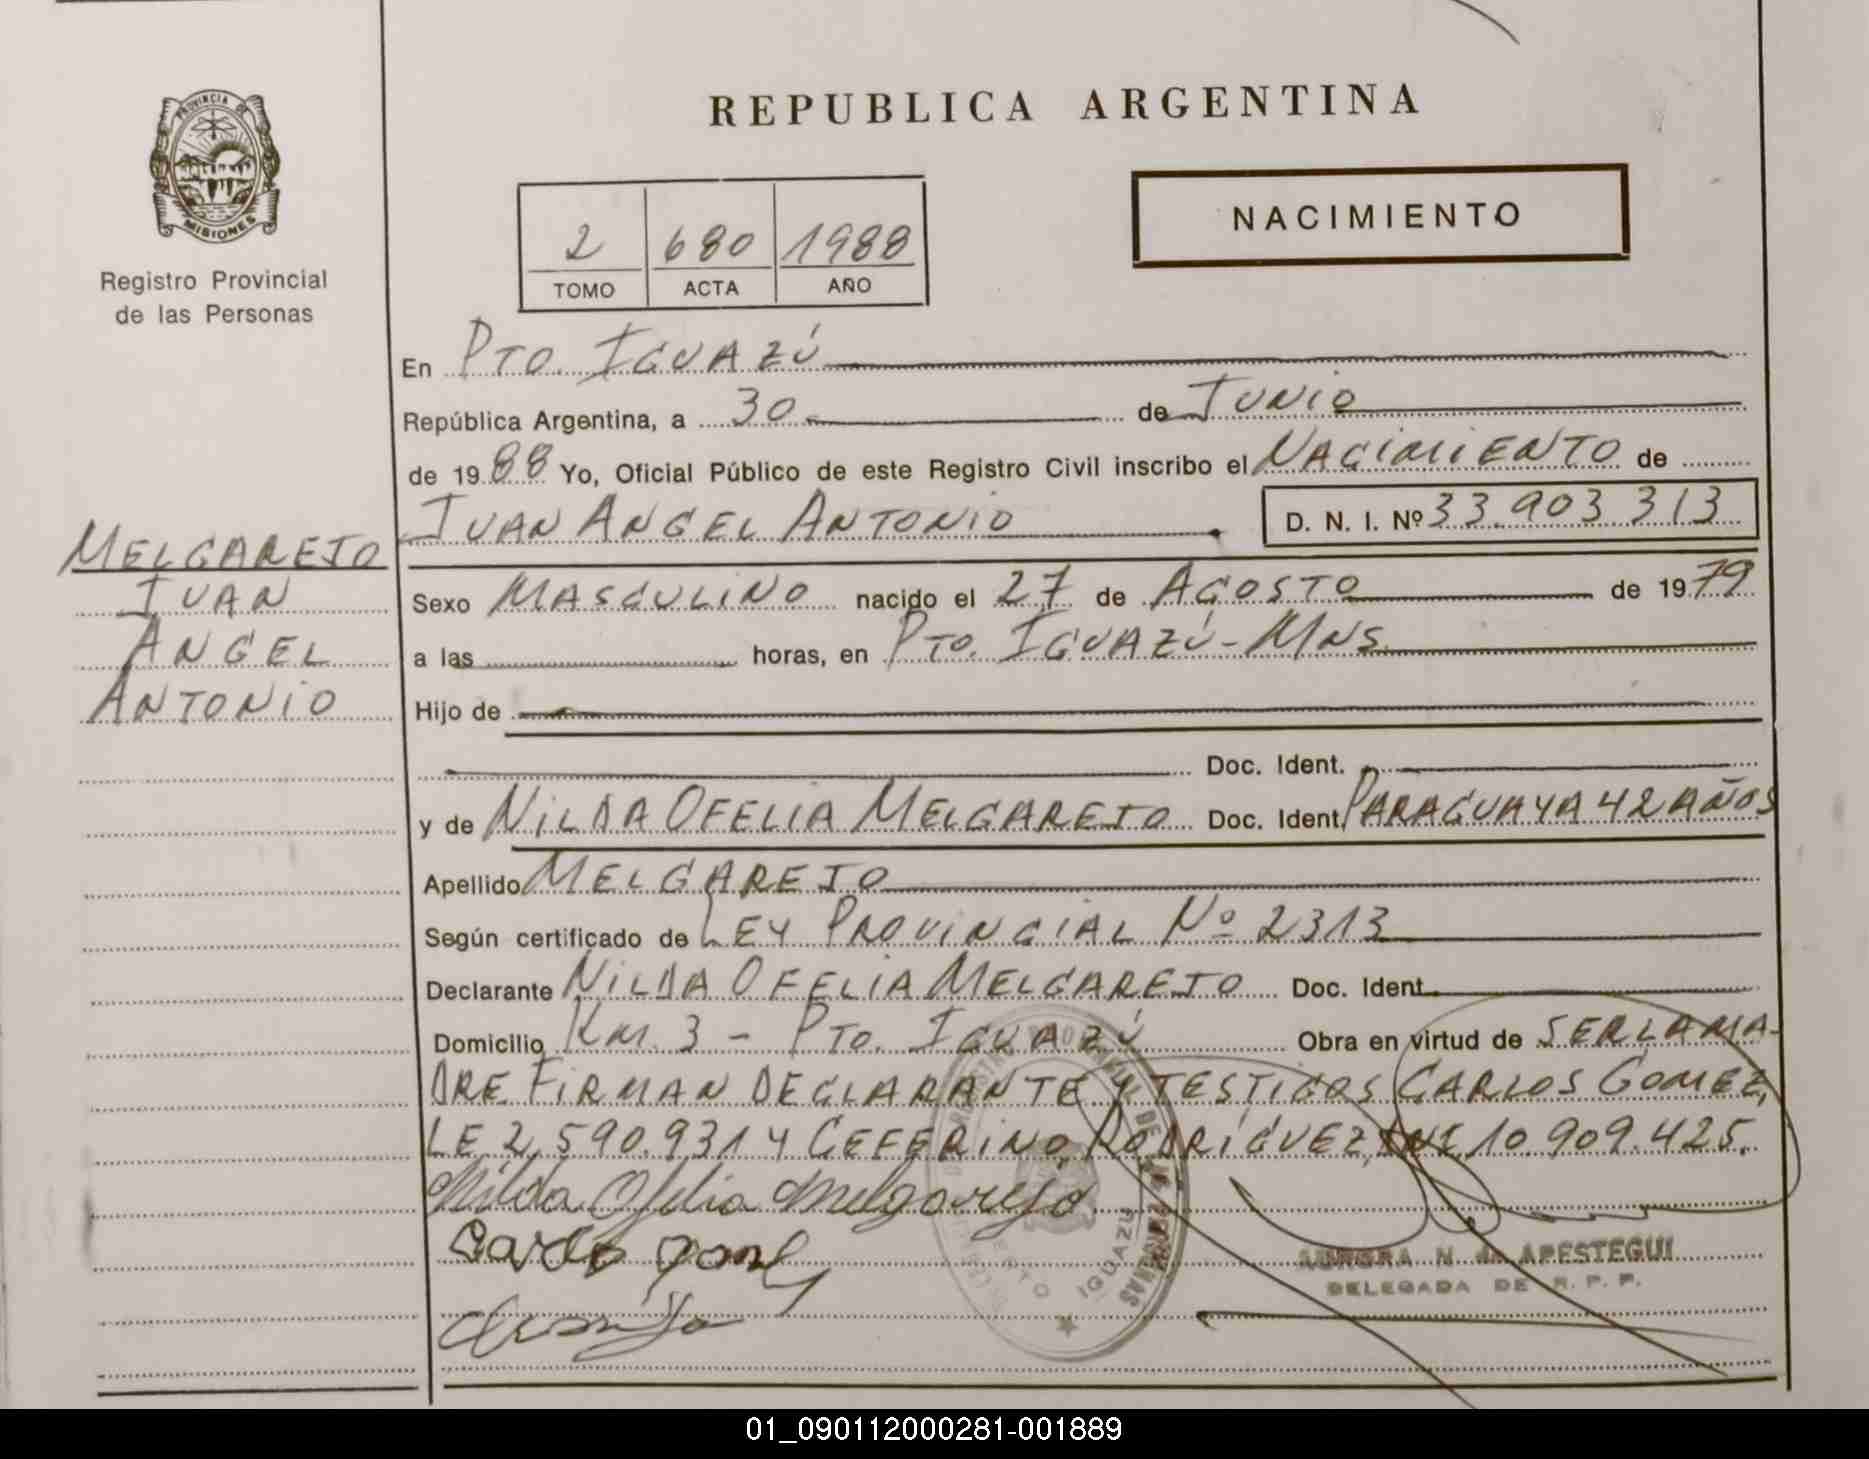 REPUBLICA ARGENTINA
PROVINCIA DE
MISIONES
Registro Provincial
de las Personas
2 680 1988
TOMO ACTA AÑO
NACIMIENTO
En PTO. IGUAZÚ
República Argentina, a 30 de JUNIO
de 1988 Yo, Oficial Público de este Registro Civil inscribo el NACIMIENTO de
IVAN ANGEL ANTONIO D. N. I. Nº 33.903.313
MELGAREJO
IVAN
ANGEL
ANTONIO
Sexo MASCULINO nacido el 27 de AGOSTO de 1979
a las horas, en PTO. IGUAZÚ - MNS.
Hijo de
Doc. Ident.
y de NILDA OFELIA MELGAREJO Doc. Ident. PARAGUAYA 42 AÑOS
Apellido MELGAREJO
Según certificado de LEY PROVINCIAL Nº 2313
Declarante NILDA OFELIA MELGAREJO Doc. Ident.
Domicilio KM. 3 - PTO. IGUAZÚ Obra en virtud de SER LA MA-
DRE FIRMAN DECLARANTE Y TESTIGOS CARLOS GOMEZ,
LE 2.590.931 Y CEFERINO RODRÍGUEZ, DNI 10.909.425.
Nilda Ofelia Melgarejo
AURORA N. de APESTEGUI
DELEGADA DE R. P. P.
IGUAZU
01_090112000281-001889